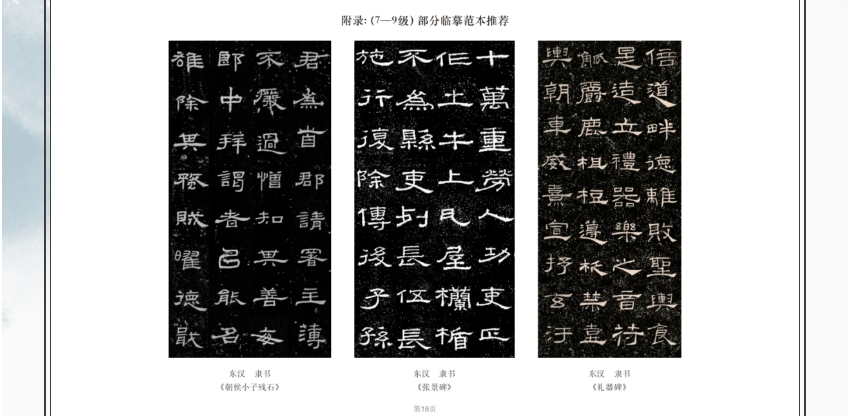 附录：(7—9级) 部分临摹范本推荐
君為首郡請署主薄
不廢過憎知其善每
郎中拜謁者㠯能名
雄除其蝥賊曜德戢
东汉 隶书
《朝侯小子残石》
十萬重勞人功吏正
作土牛上瓦屋欄楯
不為縣吏列長伍長
施行復除傳後子孫
东汉 隶书
《张景碑》
倍道畔德離敗聖輿食
是造立禮器樂之音符
觚爵鹿柤梪籩柉禁壼
輿朝車威熹宣抒玄汙
东汉 隶书
《礼器碑》
第18页